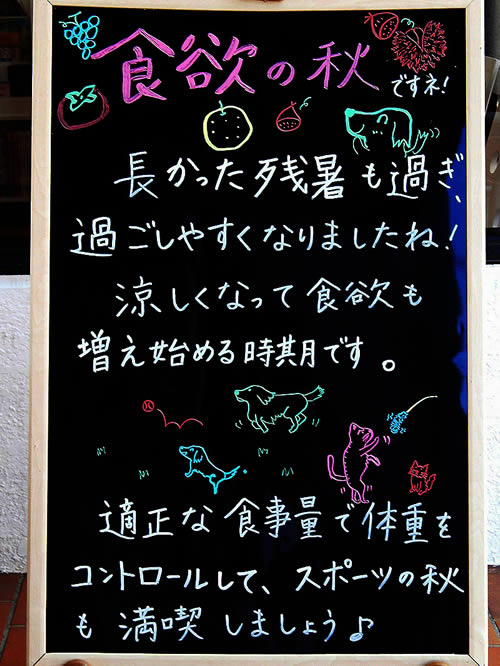 食欲の秋
ですネ!
長かった残暑も過ぎ、
過ごしやすくなりましたね!
涼しくなって食欲も
増え始める時期です。
適正な食事量で体重を
コントロールして、スポーツの秋
も満喫しましょう♪